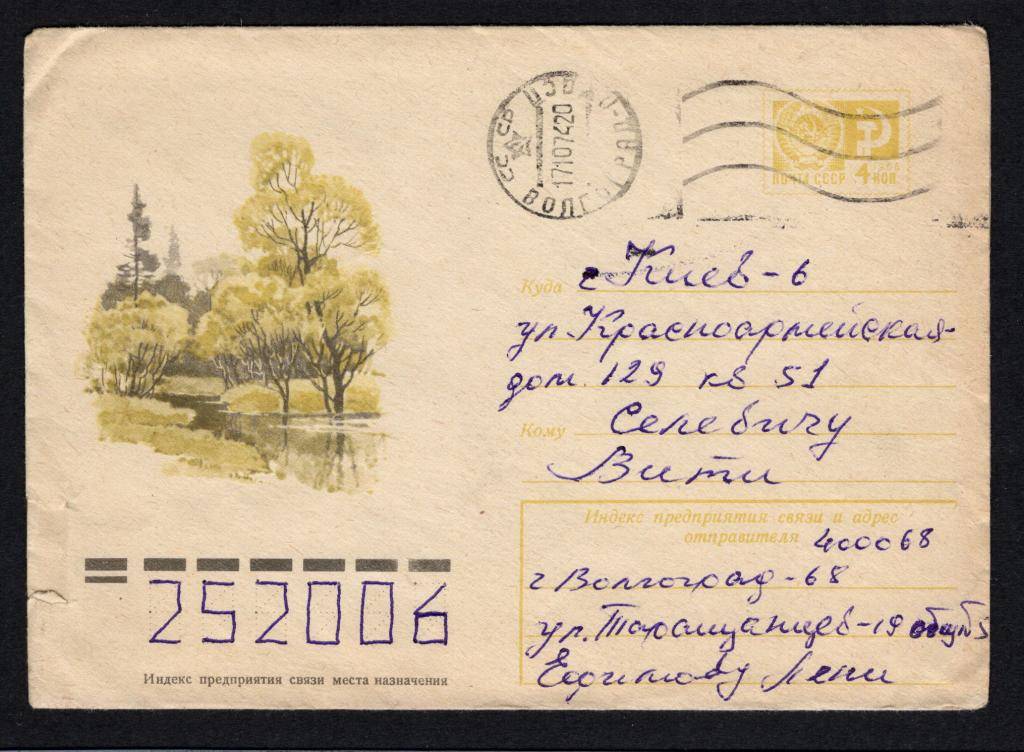 СССР
ВОЛГОГРАД
17107420
ПОЧТА СССР 4 КОП
Куда г Киев-6
ул. Красноармейская-
дом. 129 кв 51
Кому Селебичу
Вити
Индекс предприятия связи и адрес
отправителя 400068
г Волгоград-68
ул. Таращанцев-19 общ N5
Ефимову Лени
252006
Индекс предприятия связи места назначения